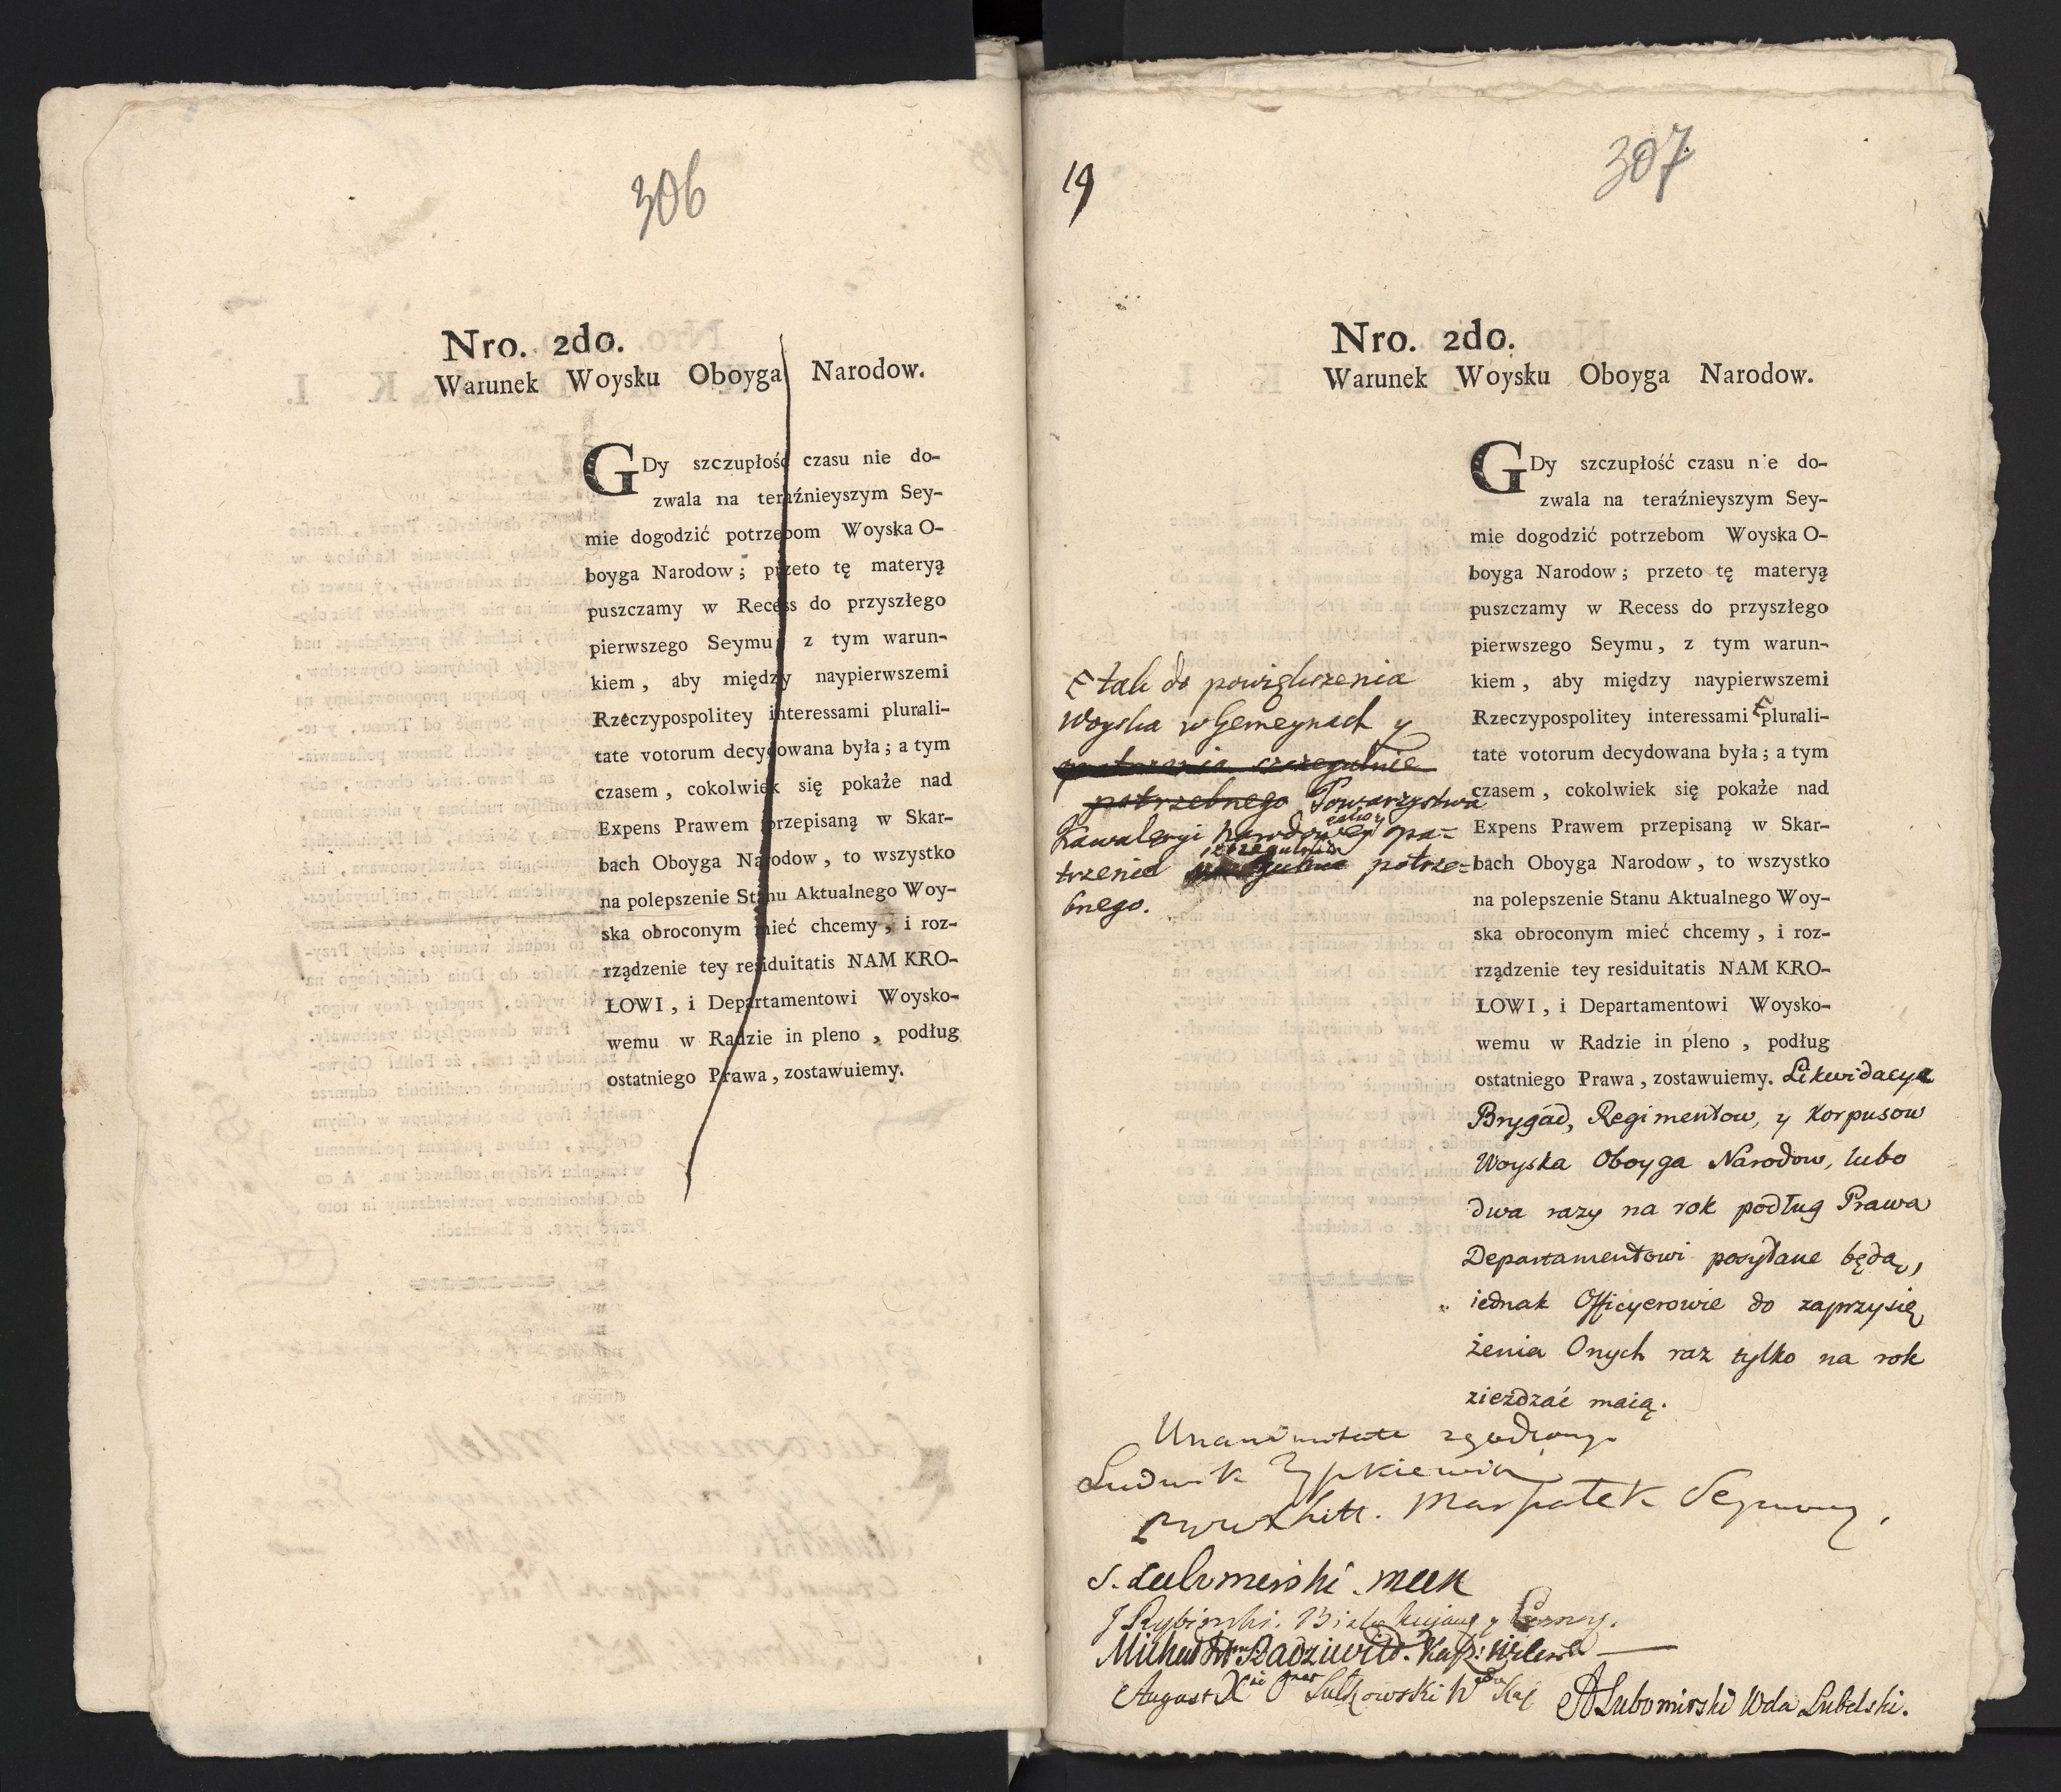 306
Nro. 2do.
Warunek Woysku Oboyga Narodow.
GDy szczupłość czasu nie do-
zwala na teraźnieyszym Sey-
mie dogodzić potrzebom Woyska O-
boyga Narodow; przeto tę materyą
puszczamy w Recess do przyszłego
pierwszego Seymu, z tym warun-
kiem, aby między naypierwszemi
Rzeczypospolitey interessami plurali-
tate votorum decydowana była; a tym
czasem, cokolwiek się pokaże nad
Expens Prawem przepisaną w Skar-
bach Oboyga Narodow, to wszystko
na polepszenie Stanu Aktualnego Woy-
ska obroconym mieć chcemy, i roz-
rządzenie tey residuitatis NAM KRO-
LOWI, i Departamentowi Woysko-
wemu w Radzie in pleno, podług
ostatniego Prawa, zostawuiemy.
19
307
Nro. 2do.
Warunek Woysku Oboyga Narodow.
GDy szczupłość czasu nie do-
zwala na teraźnieyszym Sey-
mie dogodzić potrzebom Woyska O-
boyga Narodow; przeto tę materyą
puszczamy w Recess do przyszłego
pierwszego Seymu, z tym warun-
kiem, aby między naypierwszemi
Rzeczypospolitey interessami plurali-
tate votorum decydowana była; a tym
czasem, cokolwiek się pokaże nad
Expens Prawem przepisaną w Skar-
bach Oboyga Narodow, to wszystko
na polepszenie Stanu Aktualnego Woy-
ska obroconym mieć chcemy, i roz-
rządzenie tey residuitatis NAM KRO-
LOWI, i Departamentowi Woysko-
wemu w Radzie in pleno, podług
ostatniego Prawa, zostawuiemy. Likwidacye
Brygad, Regimentow, y Korpusow
Woyska Oboyga Narodow, lubo
dwa razy na rok podług Prawa
Departamentowi posyłane będą,
iednak Officyerowie do zaprzysię
żenia Onych raz tylko na rok
zieżdzać maią.
tak do powiększenia
Woyska w Gemeynach y
szczegulnie
potrzebnego Towarzystwa
Kawaleryi Narodowey opa=
trzenia szczegulnie potrze=
bnego.
Unanimitate zgodzony
Ludwik
Marszałek Seymowy.
S. Lubomirski MWK
J Rybinski. Bisk. Kujaws. y Pomor.
Michał Radziwiłł. Kasz: Wilens
August X Sułkowski W Kal
A Lubomirski Wda Lubelski.